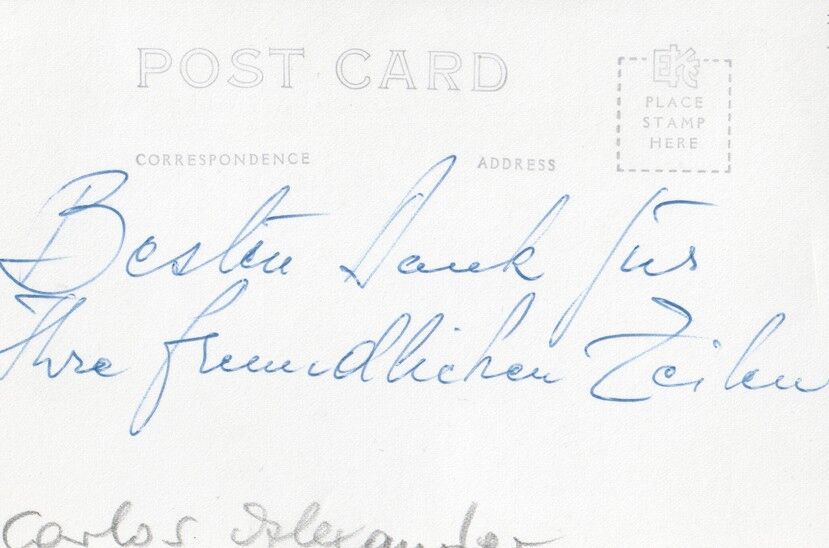 POST CARD
EKC
PLACE
STAMP
HERE
CORRESPONDENCE ADDRESS
Besten Dank für
Ihre freundlichen Zeilen
Carlos Alexander